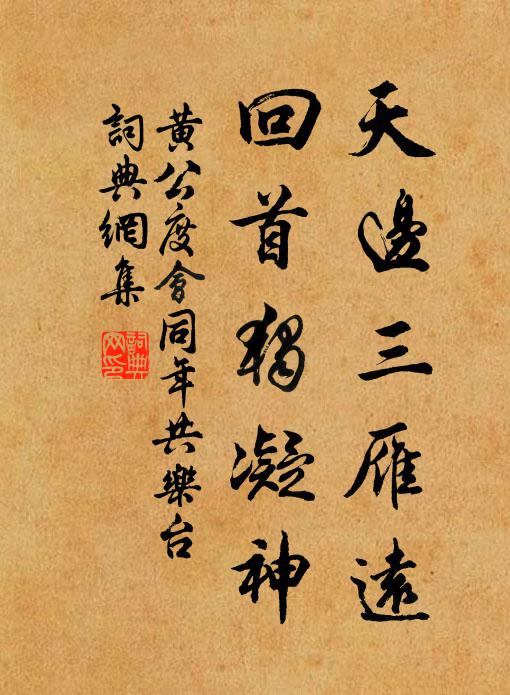 天邊三雁遠
回首獨凝神
黃公度會同年共樂台
詞典網集
詞典
网印